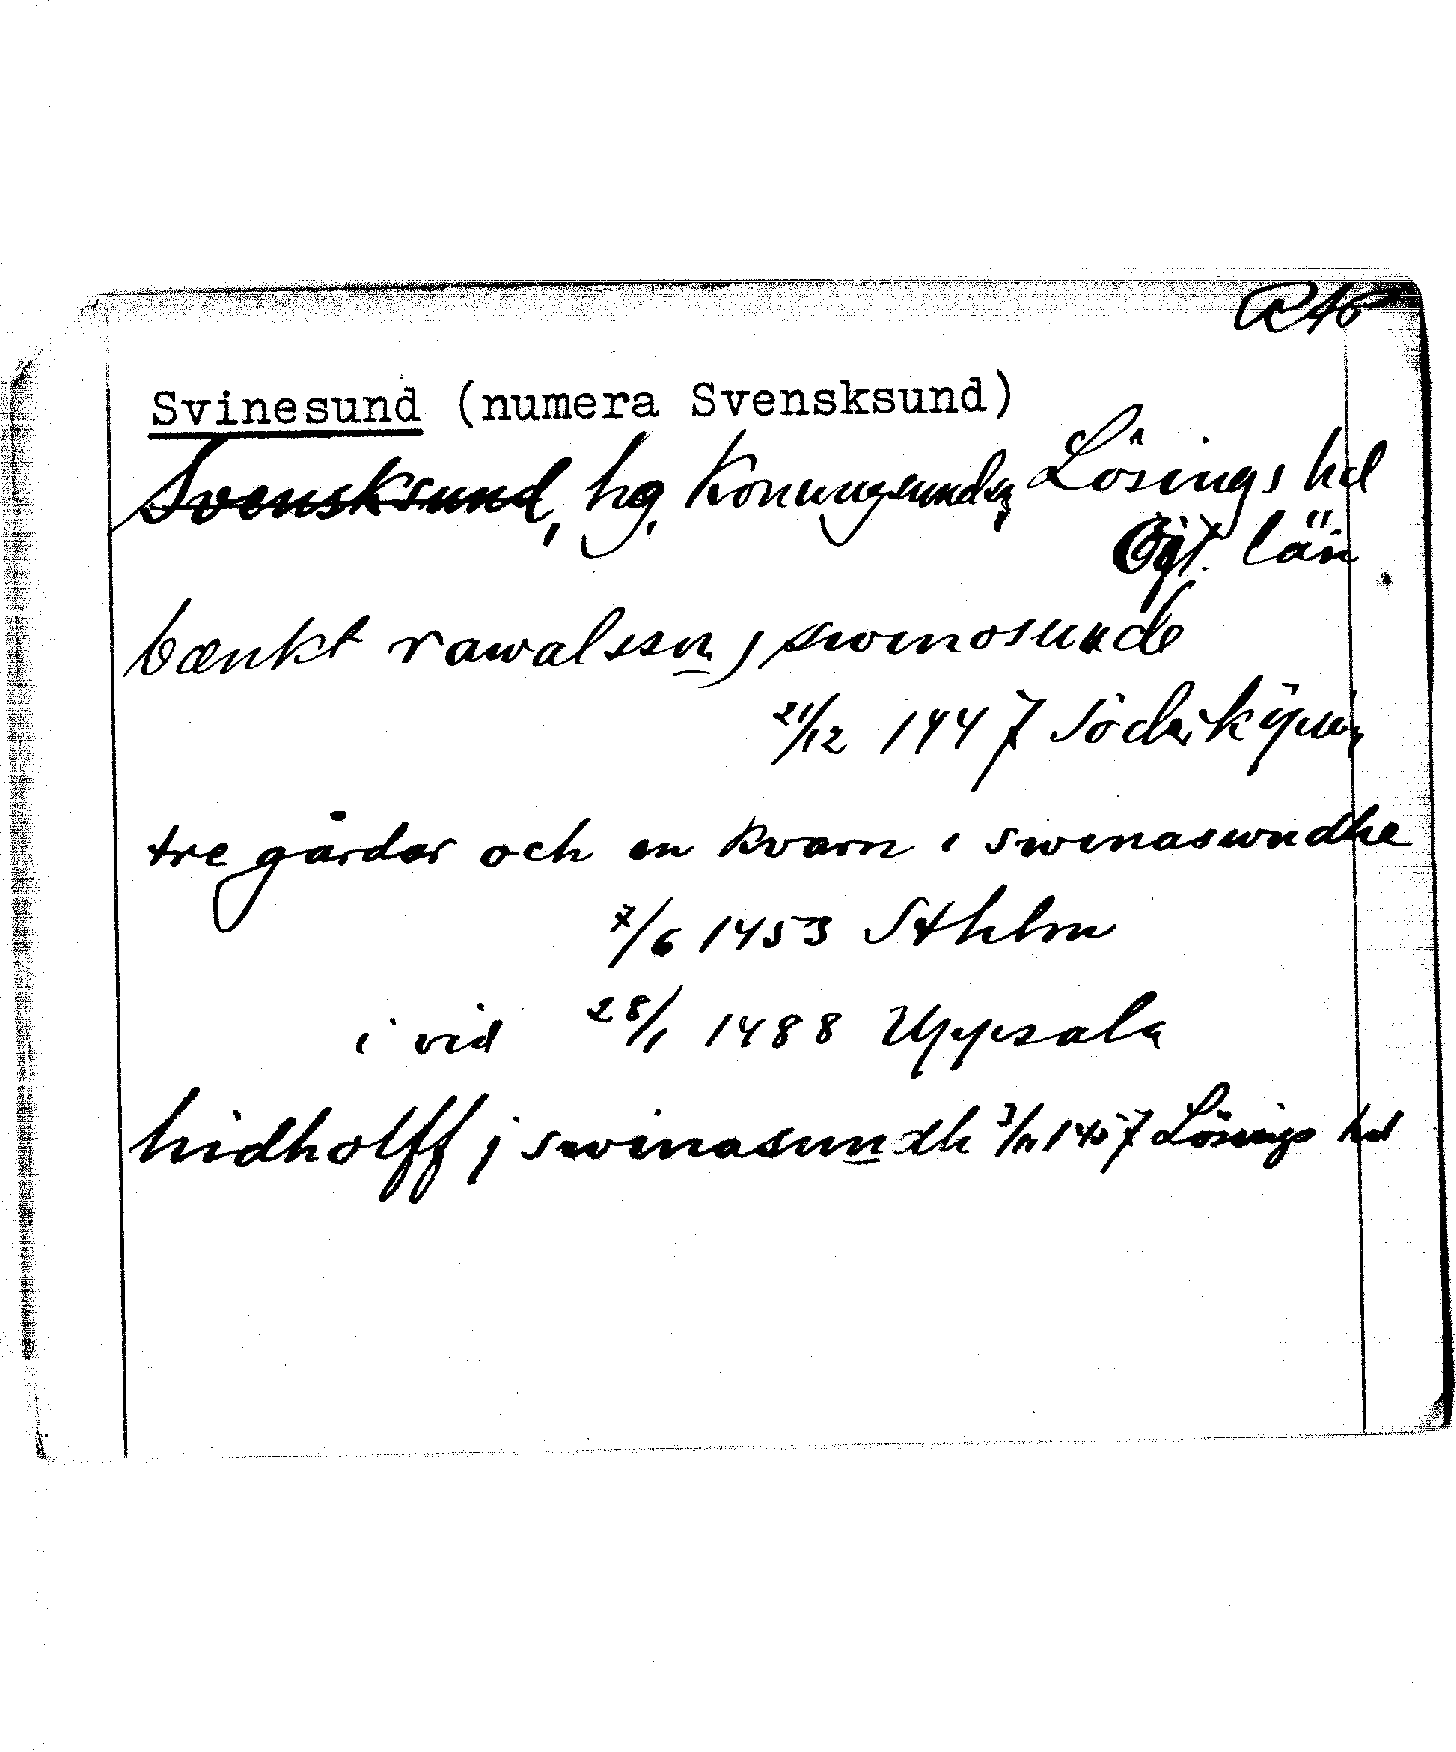 RAp
Svinesund (numera Svensksund)
Svensksund, hg, Konungsunds sn, Lösings hd
Ögl. län
bænkt rawalsson j swinosunde
21/12 1447 Söderköping
tre gårdar och en kvarn i swinasundhe
7/6 1453 Sthlm
i vid 28/1 1488 Uppsala
hidholff j swinasundh 3/11 1457 Lösings hd